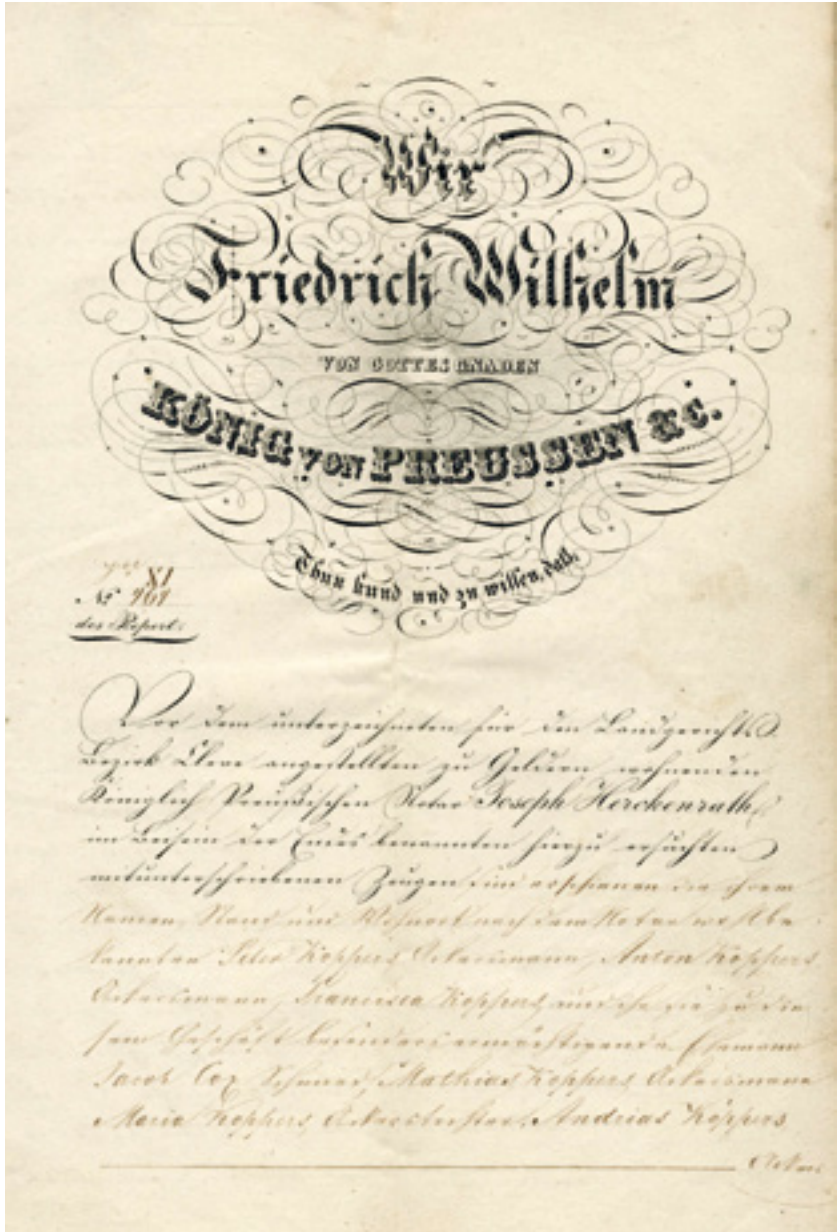 Wir
Friedrich Wilhelm
VON GOTTES GNADEN
KÖNIG VON PREUSSEN &c.
Thun kund und zu wissen, daß,
XI
No 961
des Repert:
Vor dem unterzeichneten für den Landgerichts
Bezirk Cleve angestellten zu Geldern wohnenden
Königlich Preußischen Notar Joseph Herckenrath,
im Beisein der Endes benannten hierzu ersuchten
mitunterschriebenen Zeugen, sind erschienen die ihrem
Namen, Stand und Wohnort nach dem Notar wohlbe
kannten Koppers Ackersmann, Anton Koppers
Ackersmann, Francisca Koppers und die sie zu die
sem Geschäft besonders ermächtigende Ehemann
Jacob Cox Mathias Koppers Ackersmann
Maria Koppers, Andreas Koppers
Acker